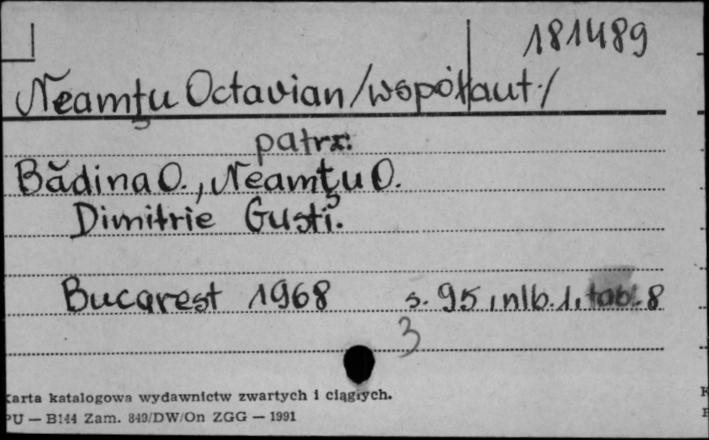 181489
Neamțu Octavian /współaut./
patrz:
Bădina O., Neamțu O.
Dimitrie Gusti.
Bucarest 1968 s. 95, nlb. 1, tabl. 8
3
Karta katalogowa wydawnictw zwartych i ciągłych.
PU — B144 Zam. 849/DW/On ZGG — 1991